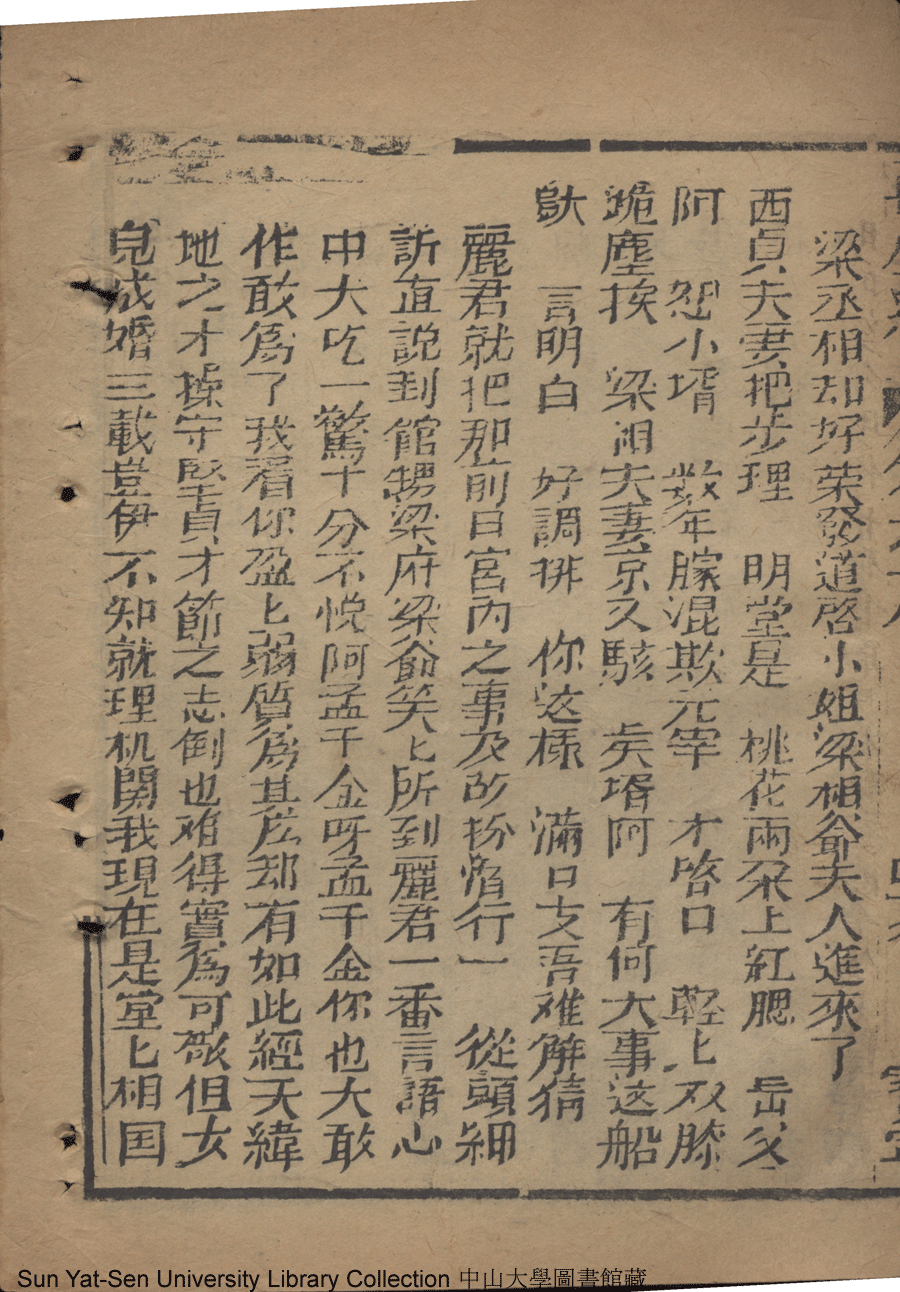 梁丞相却好荣發道啓小姐梁相爺夫人進來了
西貞夫妻把步理 明堂是 桃花兩朶上紅腮 岳父
阿 恕小壻 数年朦混欺元宰 才啓口 輕上双膝
跪塵挨 梁相夫妻京又駭 矣壻阿 有何大事这船
歇 言明白 好調排 你这樣 滿口支吾难解猜
麗君就把那前日宮內之事及故扮惰行一 從頭細
訴直說到館甥梁府梁爺笑匕所到麗君一番言語心
中大吃一驚十分不悅阿孟千金呀孟千金你也大敢
作敢爲了我看你盈匕弱質爲甚広却有如此經天緯
地之才操守堅貞才節之志倒也难得實爲可敬但女
皃成婚三載豈伊不知就理机関我現在是堂匕相国
Sun Yat-Sen University Library Collection 中山大學圖書館藏